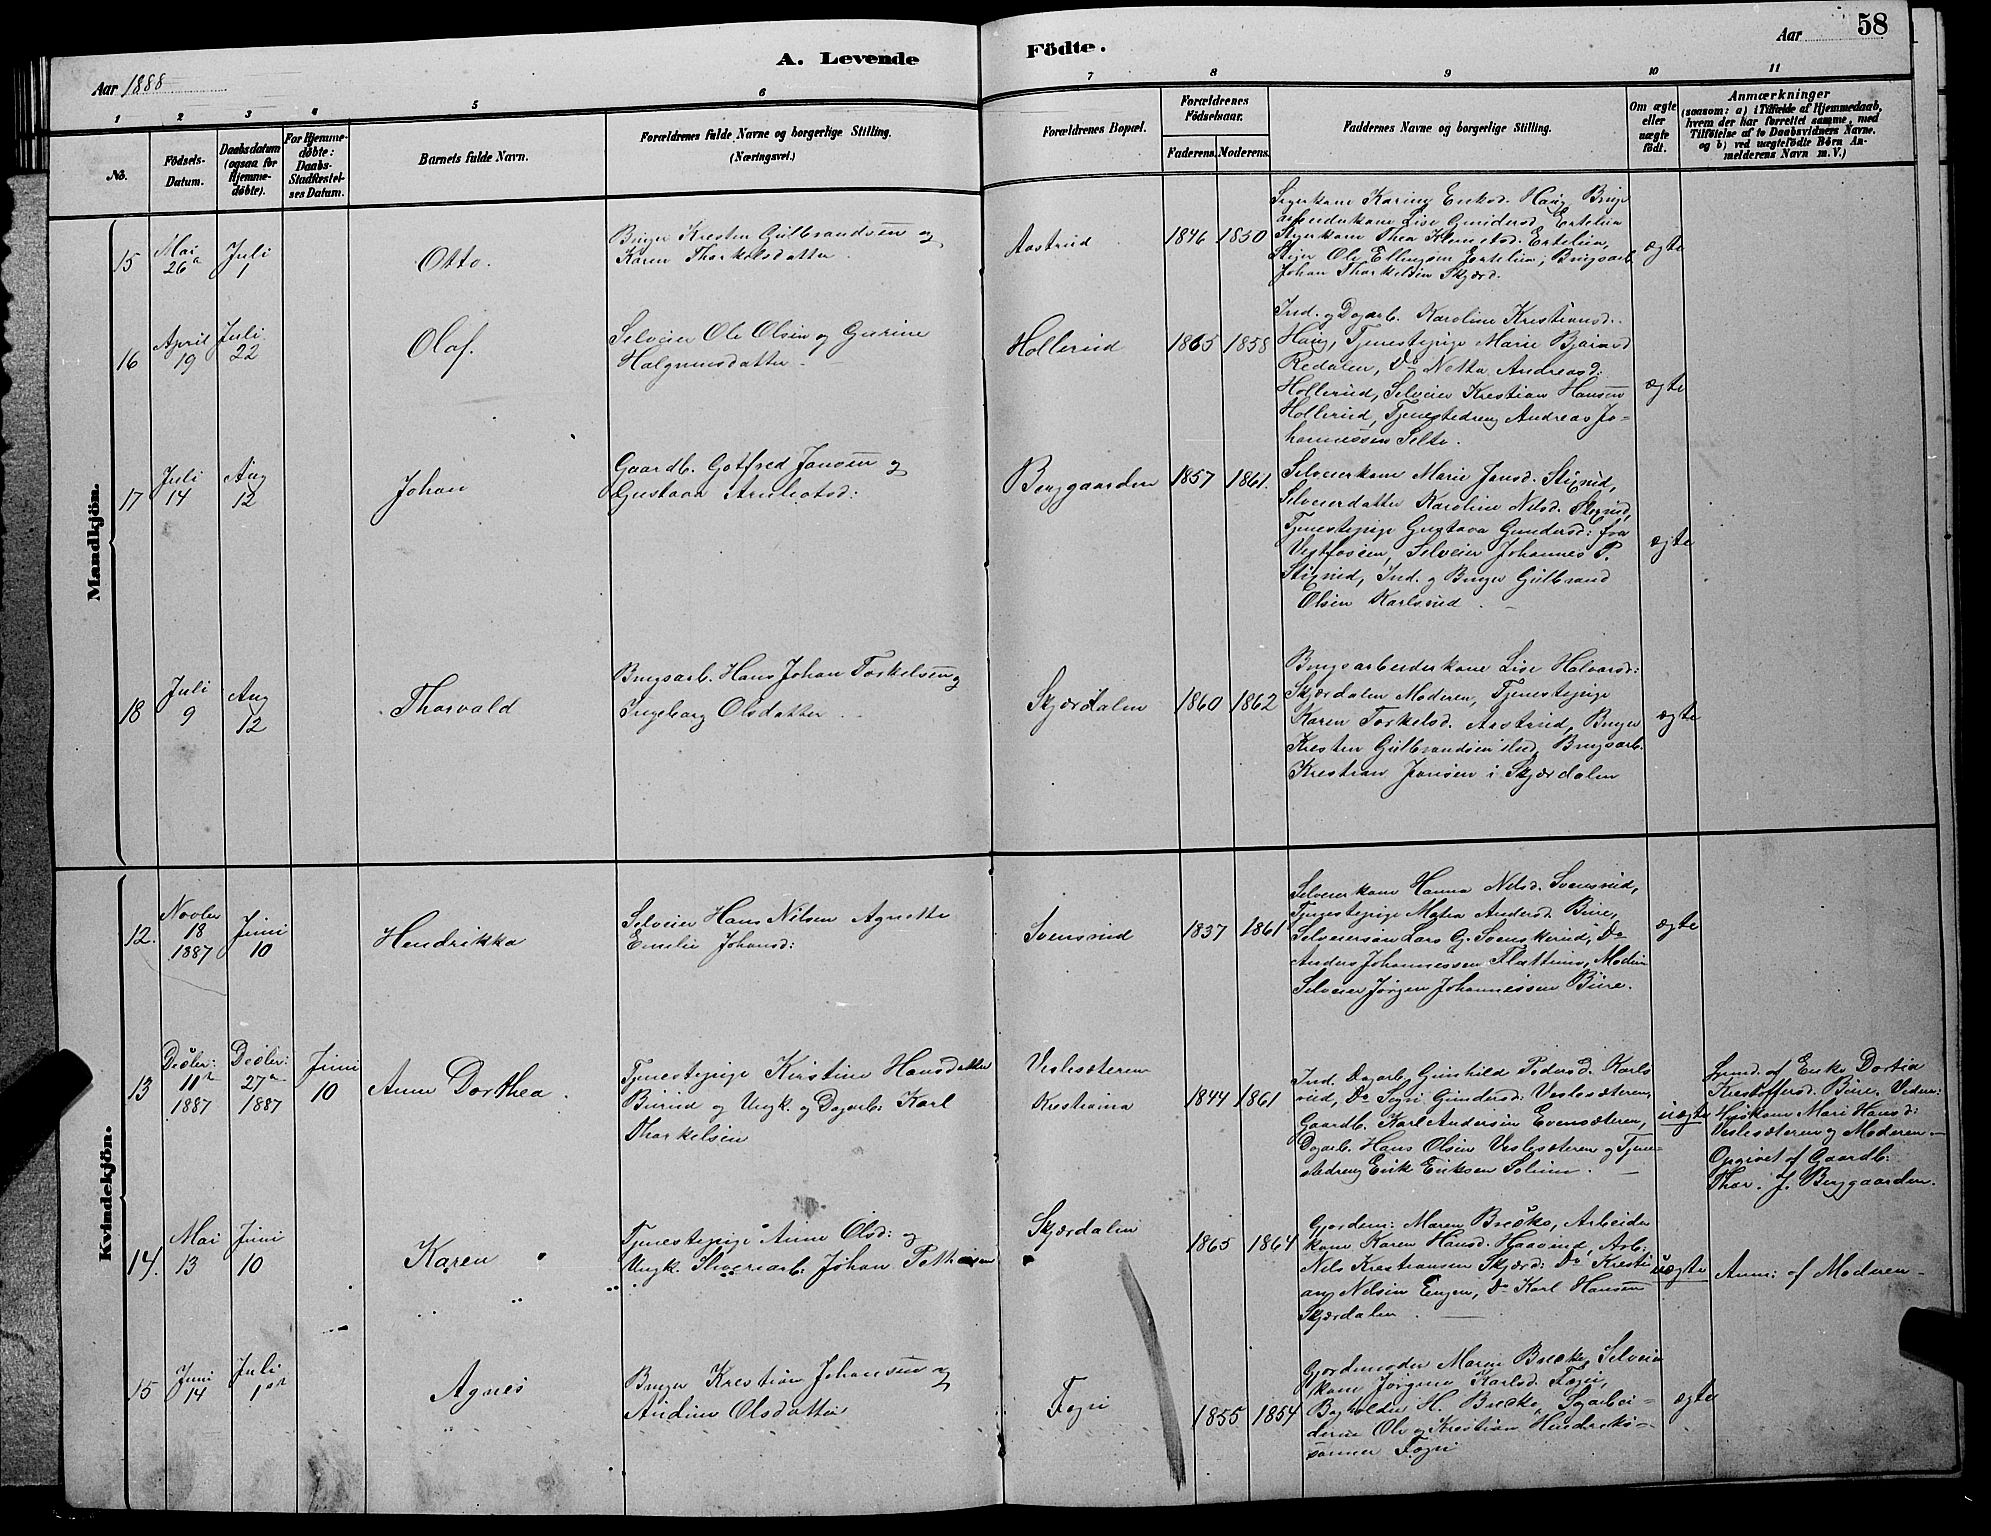 58
Aar
A. Levende Födte.
Aar 1888
1 2 3 4 5 6 7 8 9 10 11
No.
Födsels-
Datum.
Daabsdatum
(ogsaa for
Hjemme-
döbte).
For Hjemme-
döbte:
Daabs-
Stadfestel-
ses Datum.
Barnets fulde Navn.
Forældrenes fulde Navne og borgerlige Stilling.
(Næringsvei.)
Forældrenes Bopæl.
Forældrenes
Födselsaar.
Faderens. Moderens.
Faddernes Navne og borgerlige Stilling.
Om ægte
eller
uægte
födt.
Anmærkninger
(saasom: a) i Tilfælde af Hjemmedaab,
hvem der har forrettet samme, med
Tilföielse af to Daabsvidners Navne.
og b) ved uægtefödte Börn An-
melderens Navn m. V.)
Mandkjön.
15
Mai
26
Juli
1
Otto.
Bruger Kresten Gulbrandsen og
Karen Thorkelsdatter.
Aastrud
1846 1850
Karine Eriksd. Haug
Lise Gundersd. Ertelien
Thea Ertelien,
Ole Ellingsen Ertelien, Brugsarb.
Johan Thorkelsen Skjærd.
ægte
16
April
19
Juli
22
Olaf.
Selveier Ole Olsen og Gurine
Halgrimsdatter
Hollerud
1865 1858
Ind. og Dagarb. Karoline Kristiansd.
Haug, Tjenestepige Marie
Redalen, Do Netta Andreasd:
Hollerud, Selveier Kristian Hansen
Hollerud, Tjenestedreng Andreas Jo-
hannessen Selte.
ægte
17
Juli
14
Aug
12
Johan
Gaardb. Gotfred Jansen og
Gustava
Berggaarden
1857 1861.
Selveierkone Marie Jansd. Stixrud,
Selveierdatter Karoline Nilsd. Stixrud,
Tjenestepige Gustava Gundersd: fra
Vestfossen, Selveier Johannes P.
Stixrud, Ind. og Bruger Gulbrand
Olsen Karlsrud.
ægte
18
Juli
9
Aug
12
Thorvald
Brugsarb. Hans Johan Torkelsen og
Ingeborg Olsdatter
Skjærdalen
1860 1862
Brugsarbeiderkone Lise Halvorsd:
Skjærdalen Moderen, Tjenestepige
Karen Torkelsd. Aastrud, Bruger
Kresten Gulbrandsen sted, Brugsarb.
Krestian Jansen i Skjærdalen
ægte
Kvindekjön.
12.
Novber
18
1887
Juni
10
Hendrikka
Selveier Hans Nilsen Agnette
Emilie Johansd:
Svensrud
1837 1861
Selveierkone Hanna Nilsd. Svensrud,
Tjenestepige Matea Andersd. Bure,
Selveiersøn Lars G. Svenskerud, Do
Anders Johannessen Moderen
Selveier Jørgen Johannessen Bure.
ægte
13
Decber:
11
1887
Decber:
27
1887
Juni
10
Anne Dorthea
Tjenestepige Kirstine Hansdatter
Burud og Ungk. og Dagarb: Karl
Thorkelsen
Veslesæteren
Kristiania
1844 1861
Ind. Dagarb. Gunhild Pedersd. Karls
rud, Do Gundersd: Veslesæteren,
Gaardb. Karl Andersen Evensæteren,
Dagarb. Hans Olsen Veslesæteren og Tjene-
stedreng Erik Eriksen Solum.
uægte
af Enke Dortea
Kristoffersd. Bure.
Mari Hansd:
Veslesæteren og Moderen.
Opgivet af Gaardb:
Thor. J. Berggaarden.
14.
Mai
13
Juni
10
Karen
Tjenestepige Anne Olsd: og
Ungk. Johan
Skjærdalen
1865 1864
Gjordem: Maren Brecke, Arbeider
kone Karen Hansd. Arb:
Nils Kristiansen Skjærd: Do Kresti
an Nilsen Engen, Do Karl Hansen
Skjærdalen.
uægte
Anm: af Moderen
15
Juni
14
Juli
1
Agnes
Bruger Krestian Johansen og
Andine Olsdatter
Fegri
1855 1854
Gjordemoder Maren Brecke, Selveier
kone Jørgine Karlsd. Fegri,
Bogholder H. Brecke, Sagarbei-
derne Ole og Kristian Hendriks-
sønner Fegri
ægte